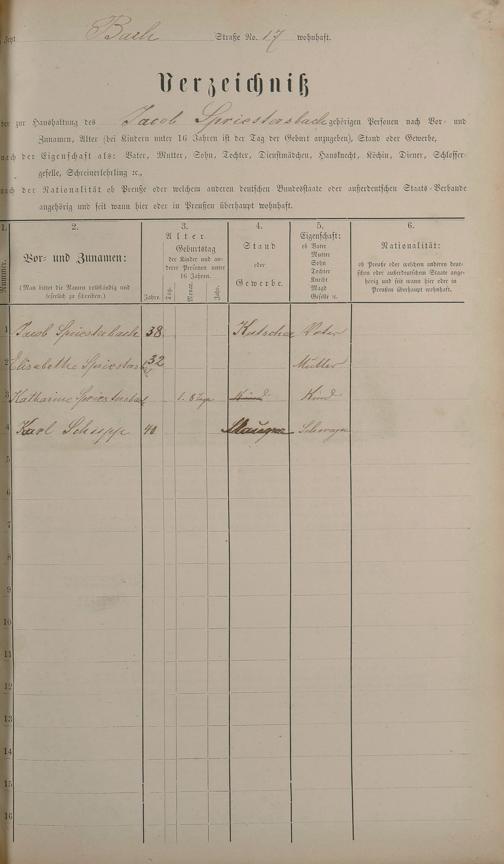 Jetzt Bach Straße No. 17 wohnhaft.
Verzeichniß
der zur Haushaltung des Jacob Spriestersbach gehörigen Personen nach Vor- und
Zunamen, Alter (bei Kindern unter 16 Jahren ist der Tag der Geburt anzugeben), Stand oder Gewerbe,
nach der Eigenschaft als: Vater, Mutter, Sohn, Tochter, Dienstmädchen, Hausknecht, Köchin, Diener, Schlosser-
geselle, Schreinerlehrling ꝛc.,
nach der Nationalität ob Preuße oder welchem anderen deutschen Bundesstaate oder außerdeutschen Staats-Verbande
angehörig und seit wann hier oder in Preußen überhaupt wohnhaft.
1. 2. 3. 4. 5. 6.
Nummer.
Vor- und Zunamen:
(Man bittet die Namen vollständig und
leserlich zu schreiben.)
Alter
Geburtstag
der Kinder und an-
derer Personen unter
16 Jahren.
Jahre. Tag. Monat. Jahr.
Stand
oder
Gewerbe.
Eigenschaft:
ob Vater
Mutter
Sohn
Tochter
Knecht
Magd
Geselle ꝛc.
Nationalität:
ob Preuße oder welchem anderen deut-
schen oder außerdeutschen Staate ange-
hörig und seit wann hier oder in
Preußen überhaupt wohnhaft.
1 Jacob Spriestersbach 38 Kutscher Vater
2 Elisabethe Spriesters 32 Mutter
3 Katharine Spriestersbach 1. 8 Kind Kind
4 Karl Schupp 40 Schwager
5
6
7
8
9
10
11
12
13
14
15
16